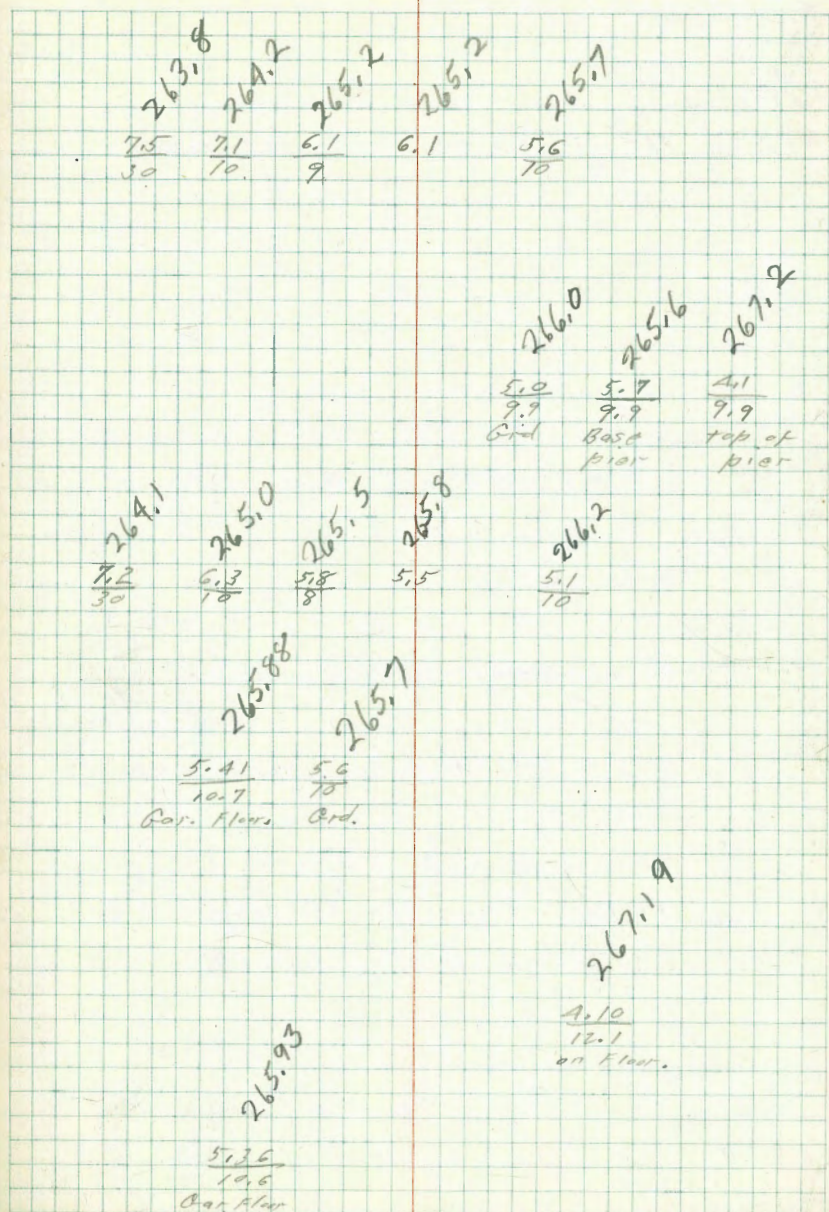 263.8 264.2 265.2 265.2 265.7
7.5 7.1 6.1 6.1 5.6
30 10 9 10
266.0 265.6 267.2
5.0 5.7 4.1
9.9 9.9 9.9
Grd Base top of
pier pier
264.1 265.0 265.5 265.8 266.2
7.2 6.3 5.8 5.5 5.1
30 10 8 10
265.88 265.7
5.41 5.6
10.7 10
Gar. Floor. Grd.
267.19
4.10
12.1
on Floor.
265.93
5.36
10.6
Gar Floor